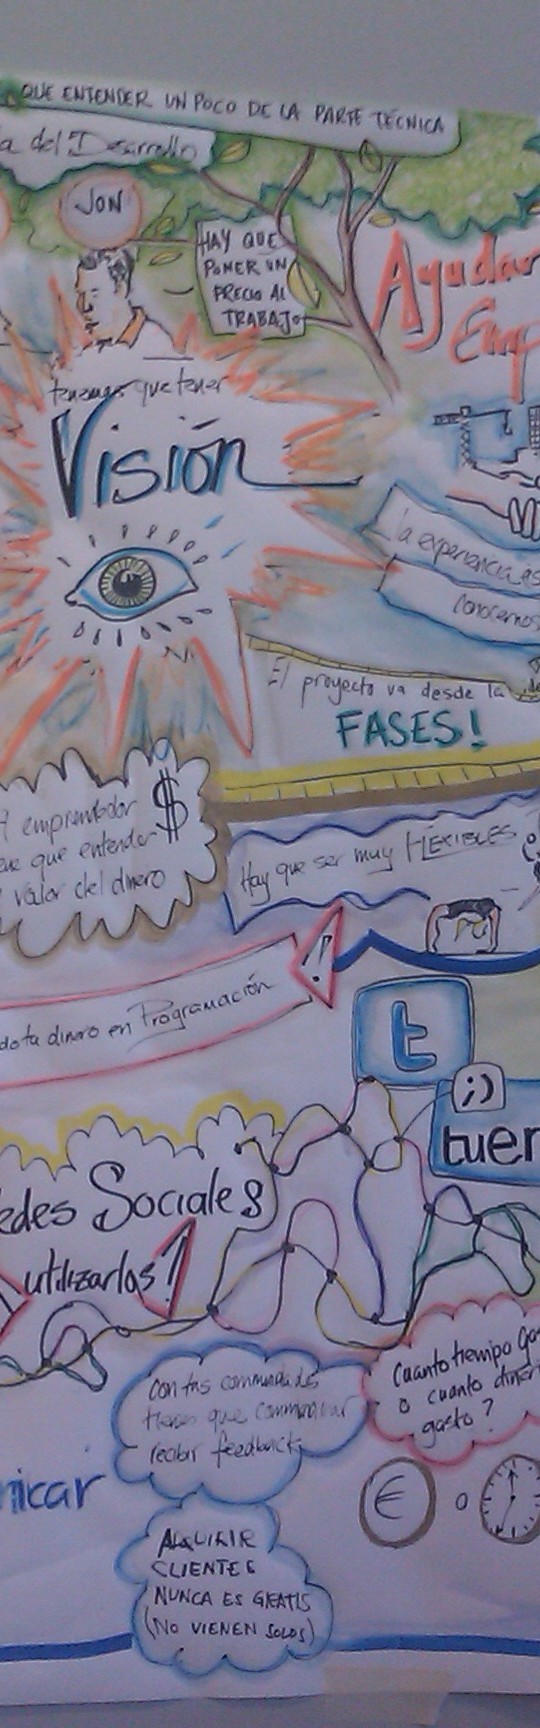 QUE ENTENDER UN POCO DE LA PARTE TÉCNICA
a del Desarrollo
JON
HAY QUE
PONER UN
PRECIO AL
TRABAJO
Ayudar
Emp
tenemos que tener
Visión
la experiencia
conocemos
El proyecto va desde la
FASES!
emprendedor
$
que entender
valor del dinero
Hay que ser muy FLEXIBLES
!
do ta dinero en Programación
t
;)
tuen
edes Sociales
utilizarlas?
Cuanto tiempo ga
o cuanto diner
gasto?
Con tus comunidades
tienes que comunicar
recibir feedback
nicar
€ o
ADQUIRIR
CLIENTES
NUNCA ES GRATIS
(NO VIENEN SOLOS)